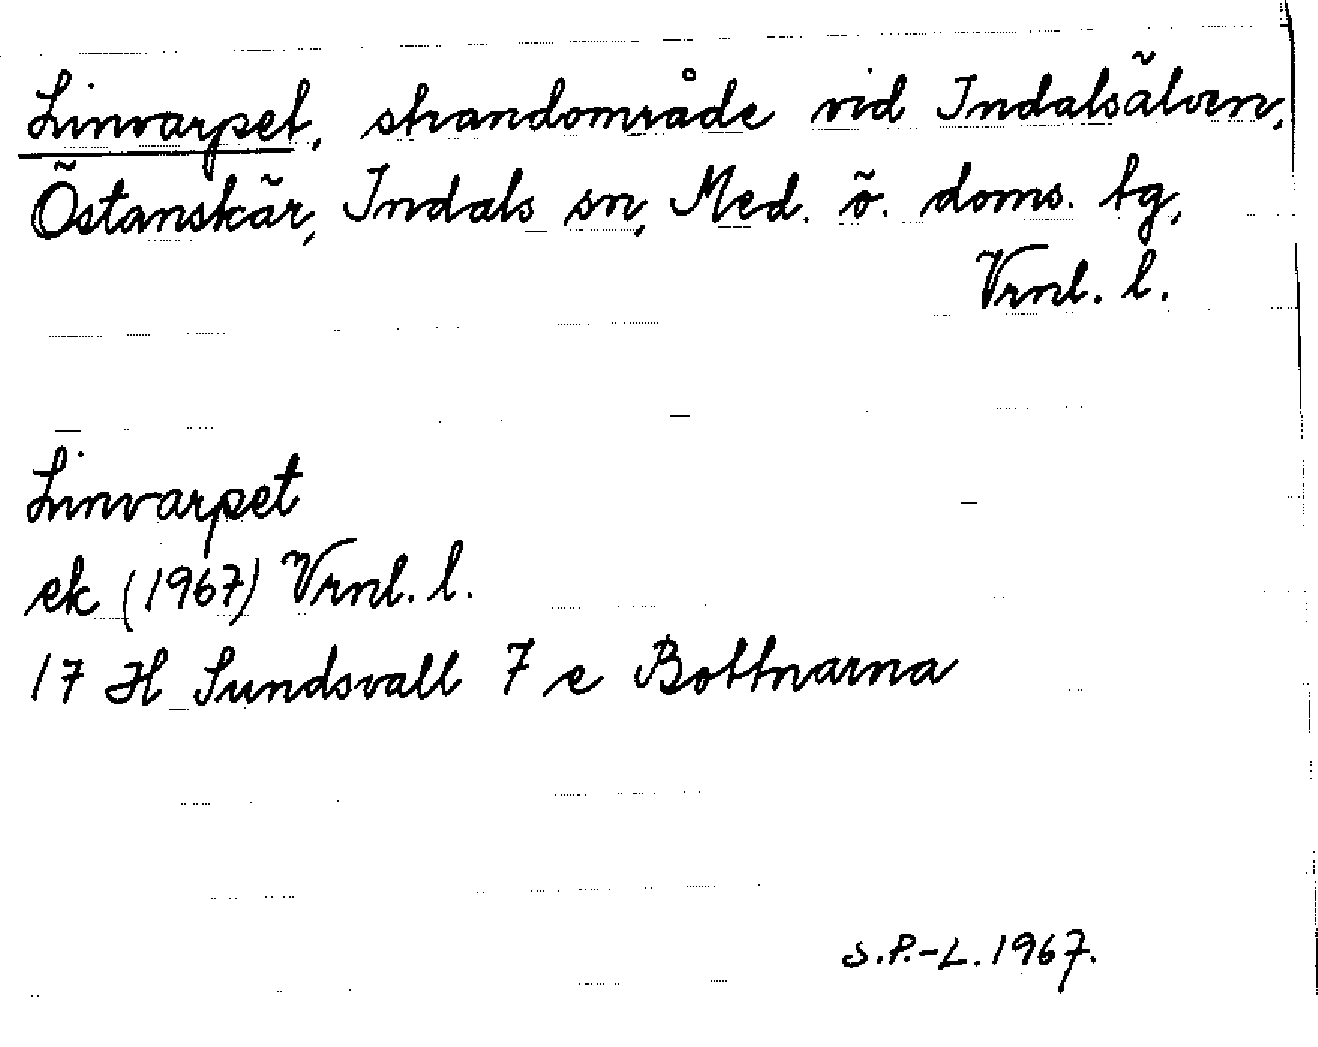 Linvarpet, strandområde vid Indalsälven,
Östanskär, Indals sn, Med. ö. doms. tg,
Vrnl. l.
Linvarpet
ek (1967) Vrnl. l.
17 H Sundsvall 7 e Bottnarna
S.P.-L. 1967.